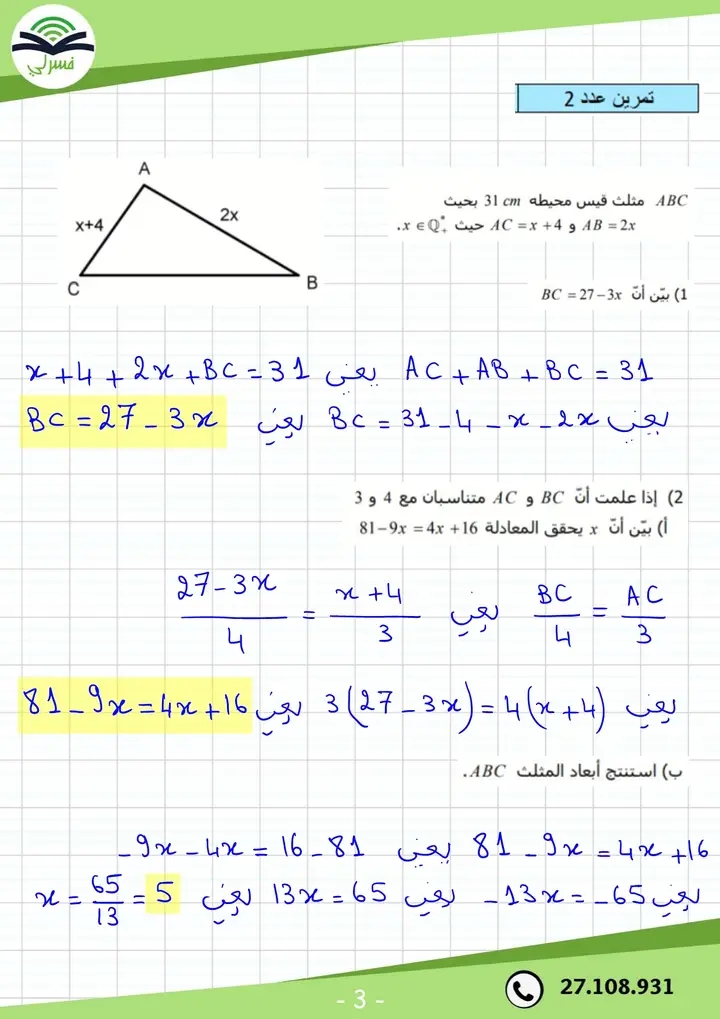 فسرلي
تمرين عدد 2
ABC مثلث قيس محيطه 31 cm بحيث
AB = 2x و AC = x + 4 حيث x ∈ ℚ*₊.
A
x+4
2x
C
B
1) بيّن أنّ BC = 27 − 3x
AC + AB + BC = 31 يعني x + 4 + 2x + BC = 31
يعني BC = 31 - 4 - x - 2x يعني BC = 27 - 3x
2) إذا علمت أنّ BC و AC متناسبان مع 4 و 3
أ) بيّن أنّ x يحقق المعادلة 81 − 9x = 4x + 16
AC/3 = BC/4 يعني (27 - 3x)/4 = (x + 4)/3
يعني 3(27 - 3x) = 4(x + 4) يعني 81 - 9x = 4x + 16
ب) استنتج أبعاد المثلث ABC.
81 - 9x = 4x + 16 يعني -9x - 4x = 16 - 81
يعني -13x = -65 يعني 13x = 65 يعني x = 65/13 = 5
27.108.931
- 3 -